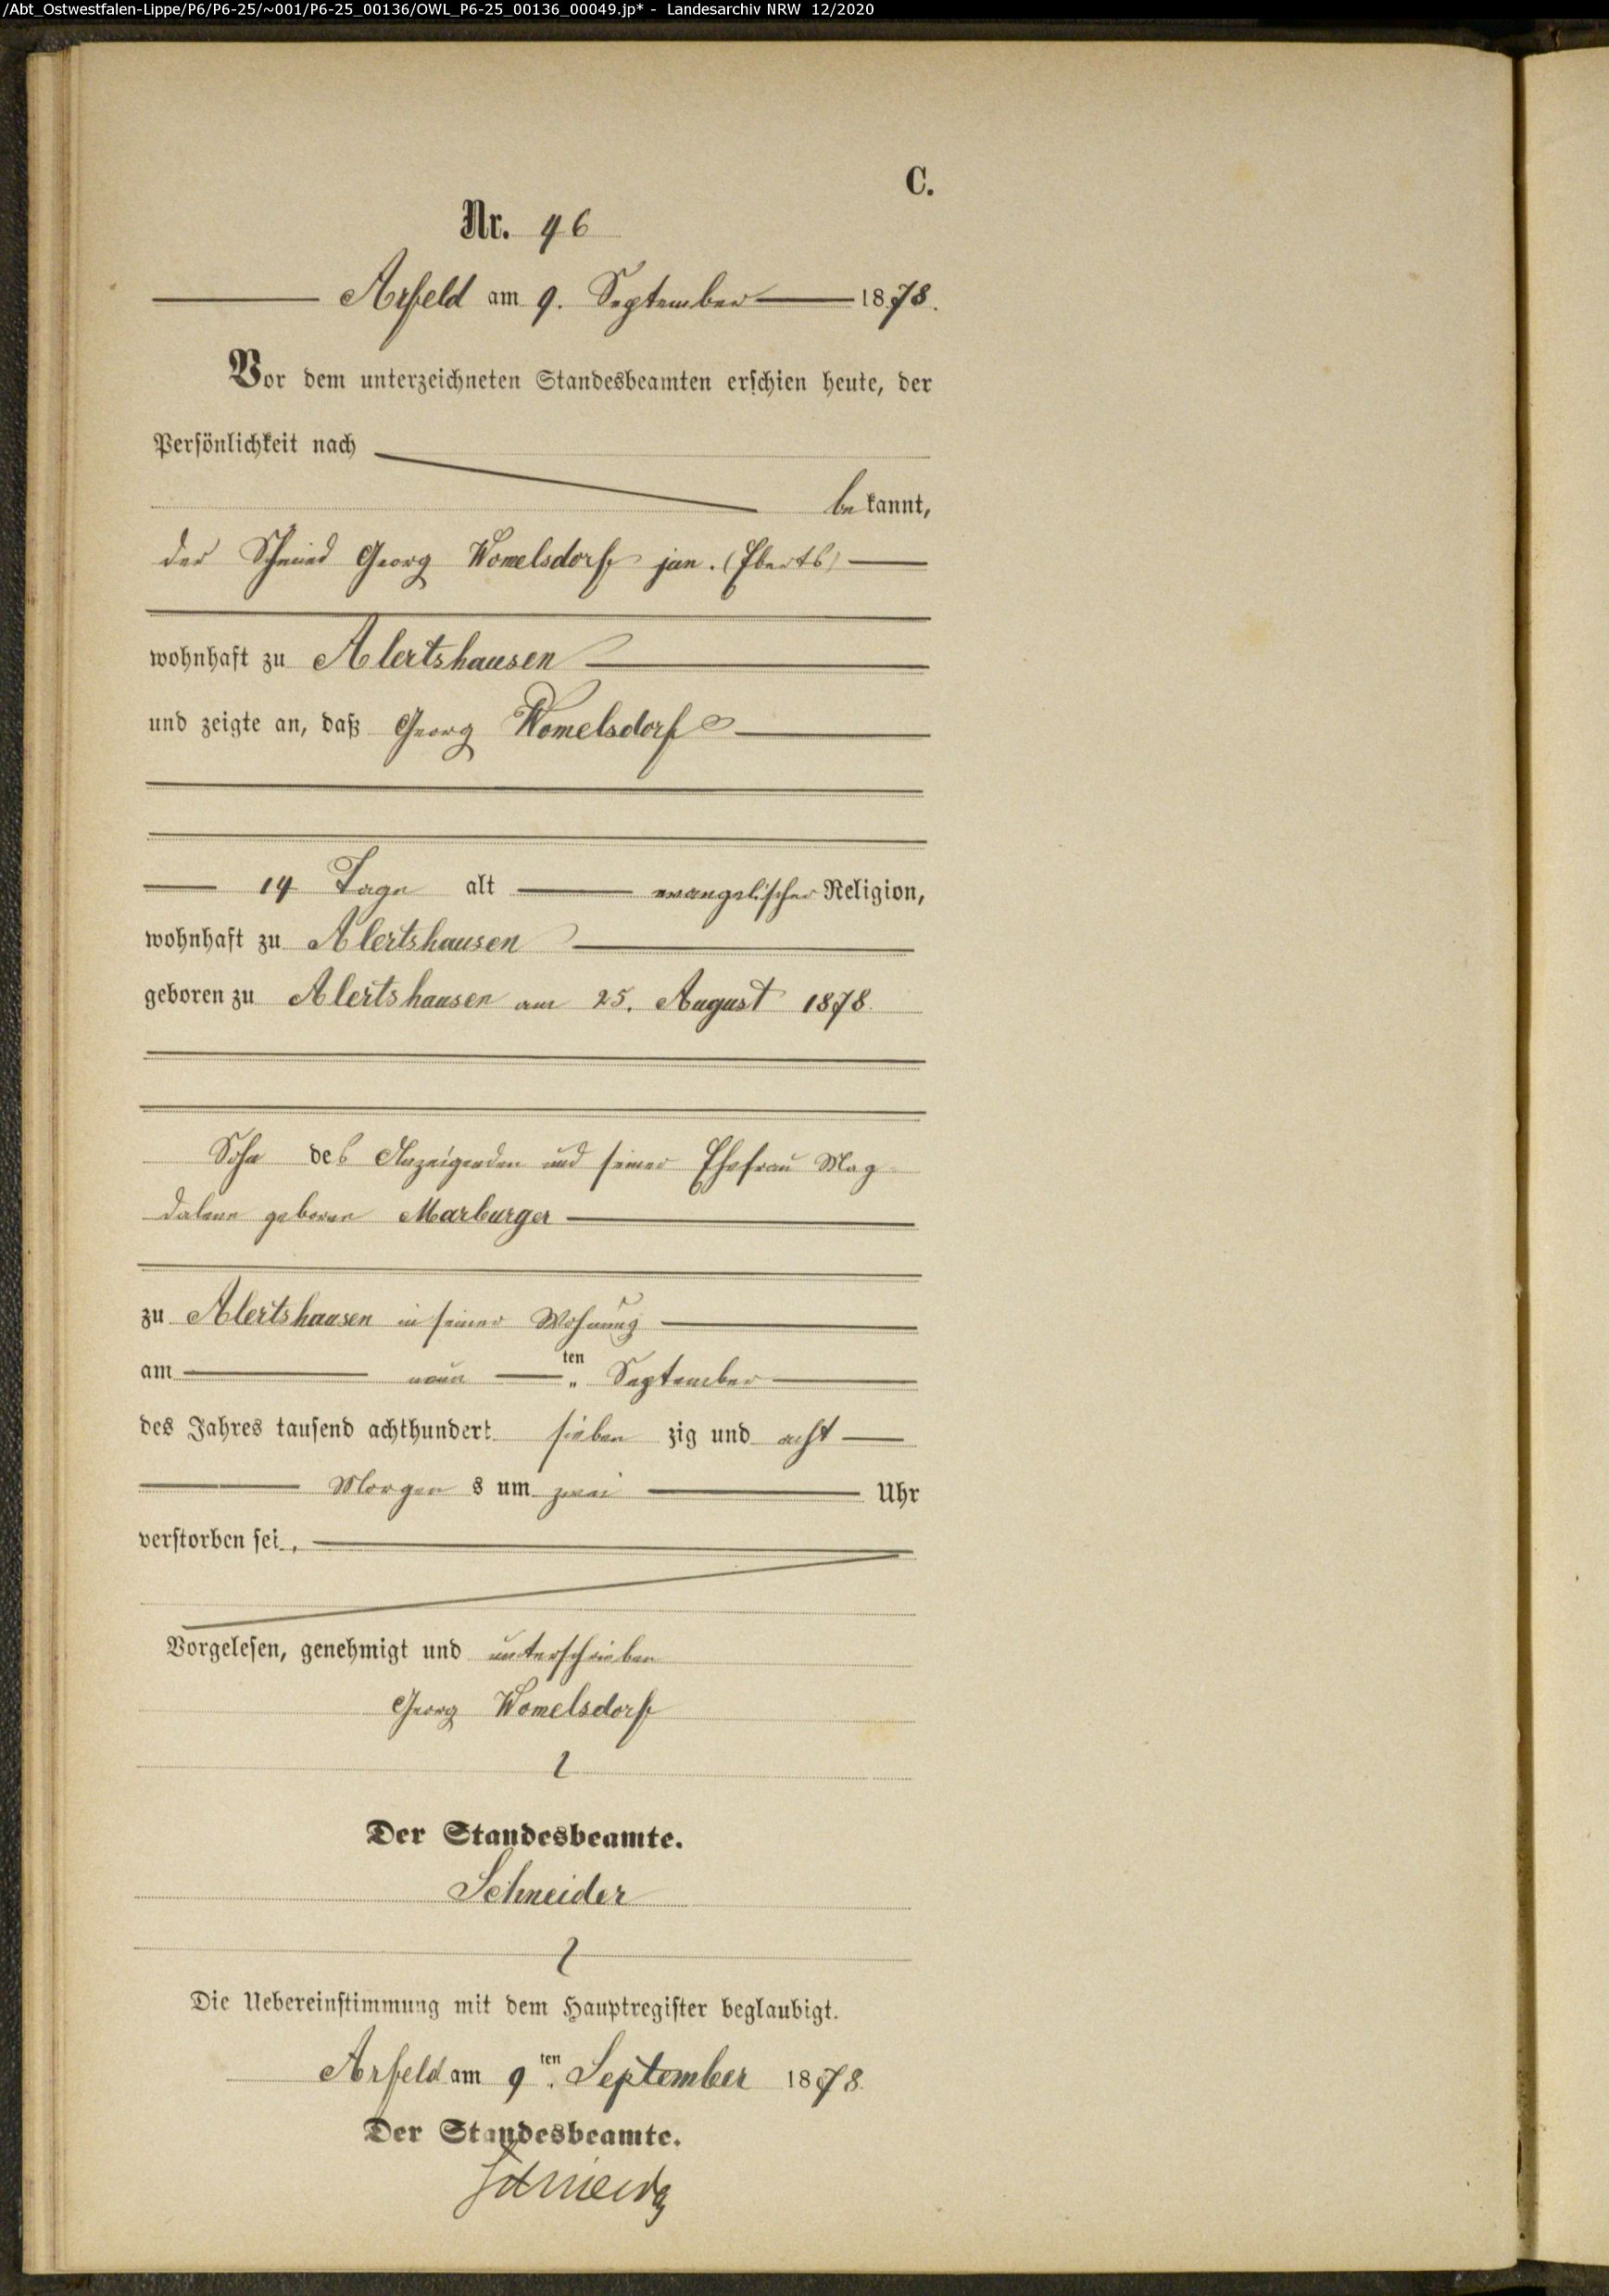 /Abt_Ostwestfalen-Lippe/P6/P6-25/~001/P6-25_00136/OWL_P6-25_00136_00049.jp* - Landesarchiv NRW 12/2020
C.
Nr. 46
Arfeld am 9. September 1878.
Vor dem unterzeichneten Standesbeamten erschien heute, der
Persönlichkeit nach
bekannt,
der Schmied Georg Womelsdorf jun. (Eberts)
wohnhaft zu Alertshausen
und zeigte an, daß Georg Womelsdorf
14 Tage alt evangelischer Religion,
wohnhaft zu Alertshausen
geboren zu Alertshausen am 25. August 1878.
Sohn des Anzeigenden und seiner Ehefrau Mag
dalene geborene Marburger
zu Alertshausen in seiner Wohnung
am neun ten September
des Jahres tausend achthundert sieben zig und acht
Morgens um zwei Uhr
verstorben sei,
Vorgelesen, genehmigt und unterschrieben
Georg Womelsdorf
Der Standesbeamte.
Schneider
Die Uebereinstimmung mit dem Hauptregister beglaubigt.
Arfeld am 9ten September 1878.
Der Standesbeamte.
Schneider